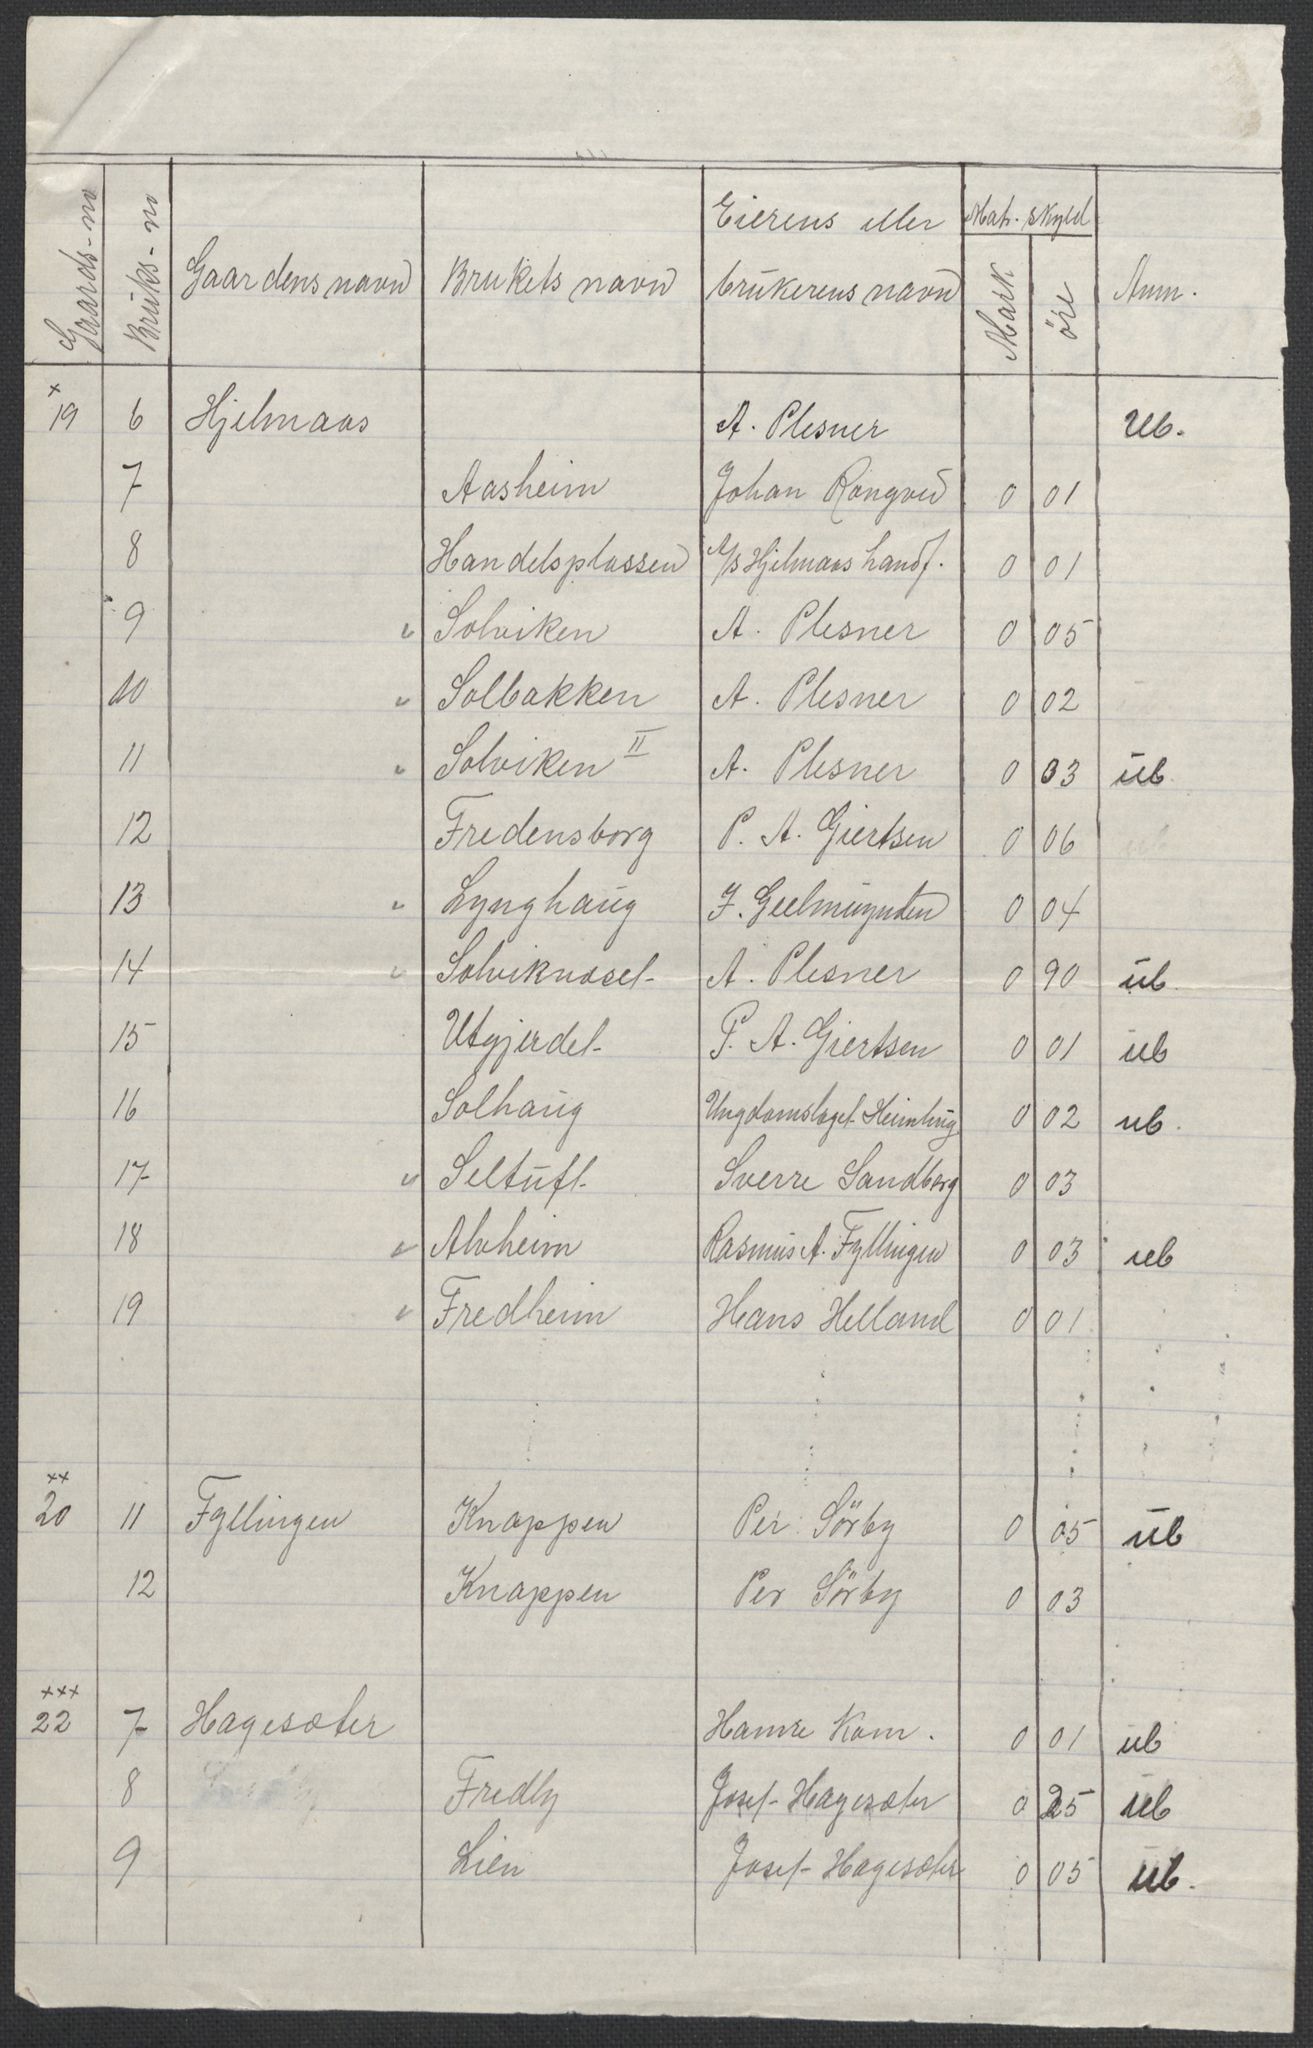 Gaards-no Bruks-no Gaardens navn Brukets navn Eierens eller brukerens navn Matr. skyld Mark öre Anm.
x
19 6 Hjelmaas A. Plesner ub.
7 Aasheim Johan Rongved 0 01
8 Handelsplassen A/S Hjelmaas handf. 0 01
9 Solviken A. Plesner 0 05
10 Solbakken A. Plesner 0 02
11 Solviken II A. Plesner 0 03 ub
12 Fredensborg P. A. Giertsen 0 06
13 Lynghaug F. Geelmuyden 0 04
14 Solviknaset A. Plesner 0 90 ub
15 Utgjerdet P. A. Giertsen 0 01 ub
16 Solhaug Ungdomslaget Heimhug 0 02 ub.
17 Seltuft Sverre Sandborg 0 03
18 Alvheim Rasmus A. Fyllingen 0 03 ub
19 Fredheim Hans Helland 0 01
xx
20 11 Fyllingen Knappen Per Sörby 0 05 ub
12 Knappen Per Sörby 0 03
xxx
22 7 Hagesæter Hamre Kom. 0 01 ub
8 Fredly Josef Hagesæter 0 25 ub
9 Lien Josef Hagesæter 0 05 ub.